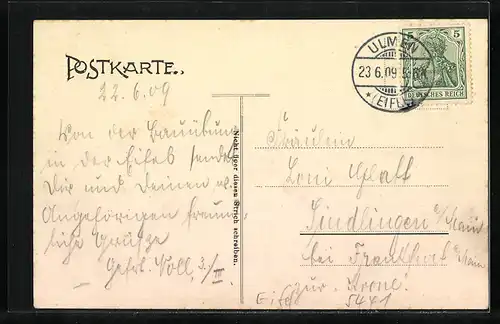 POSTKARTE.
22.6.09
Von der Bauübung
in der Eifel sendet
Dir und Deinen w.
Angehörigen freund-
liche Grüsse
Gefr. Voll, 3./III.
Nicht über diesen Strich schreiben.
ULMEN
23.6.09
(EIFEL)
5 5
DEUTSCHES REICH
Fräulein
Loni Glatt
Sindlingen a/Main
bei Frankfurt a/Main
zur Krone.
Eifel 54x1